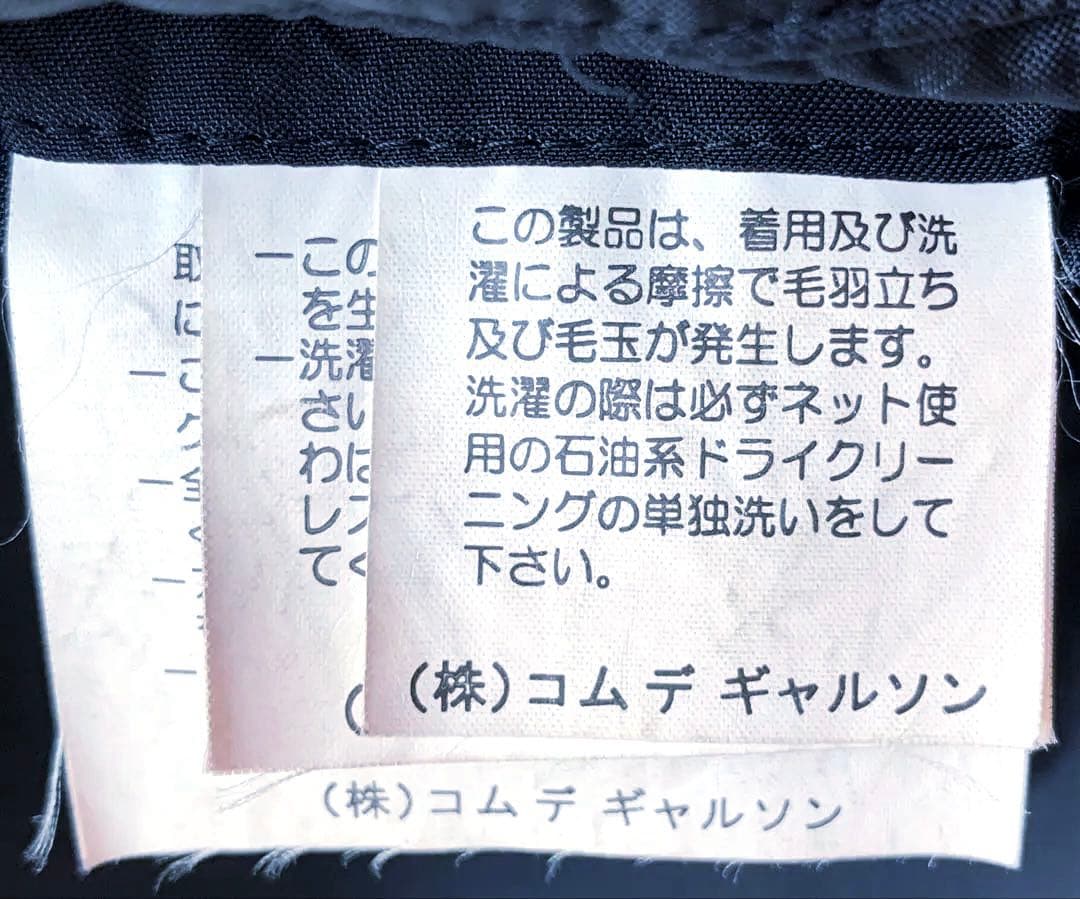 この製品は、着用及び洗
濯による摩擦で毛羽立ち
及び毛玉が発生します。
洗濯の際は必ずネット使
用の石油系ドライクリー
ニングの単独洗いをして
下さい。
(株)コム デ ギャルソン
ーこの
を生
ー洗濯
さい
わは
しプ
てく
(
取
に
ーこ
ク
(株)コム デ ギャルソン